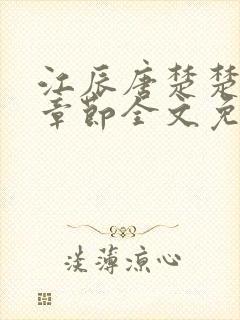 江辰唐楚楚
章节全文免
淡薄凉心